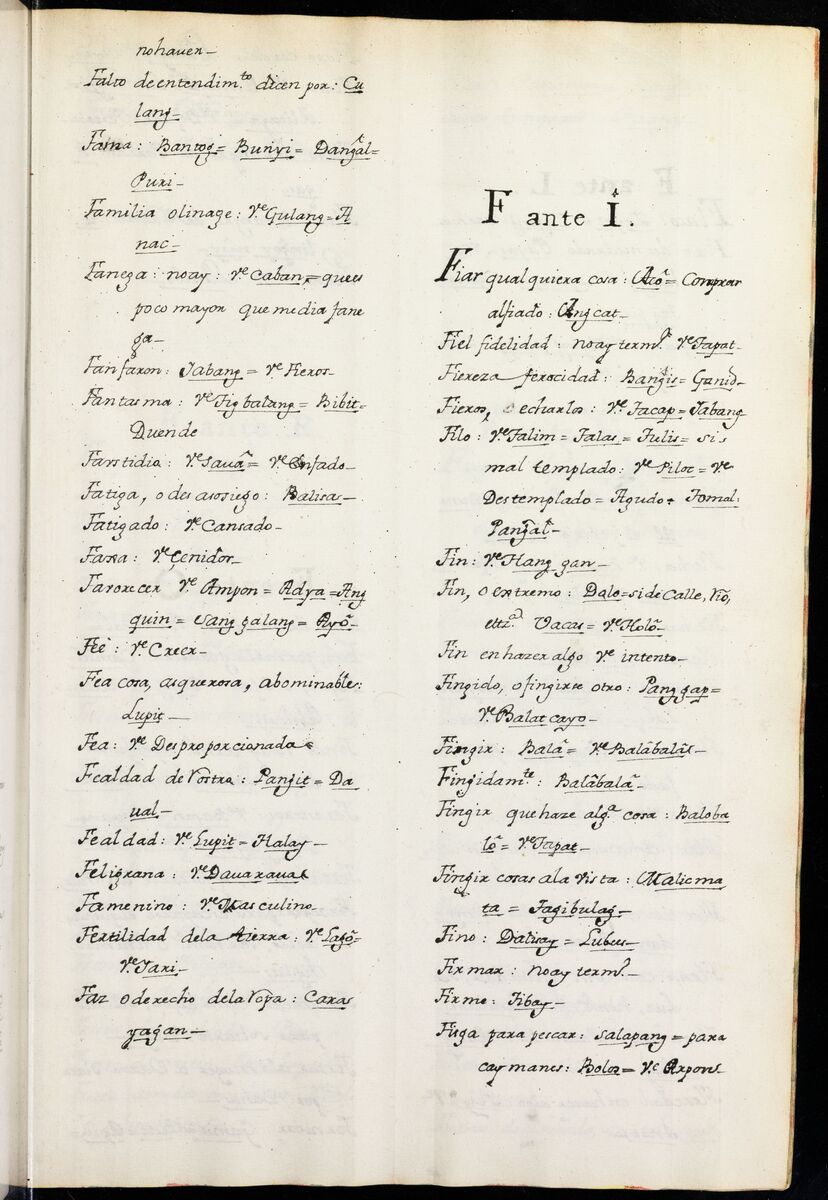 no haver_
Falto de entendim.to dicen por: Cu
lang_
Fama: Bantog= Bunyi= Dangal=
Puri_
Familia o linage: V.e Gulang= A
nac_
Fanega: no ay: V.e Caban,= que es
poco mayor que media fane
ga_
Fanfaron: Tabang= V.e Fieros_
Fantasma: V.e Tigbalang= Bibit_
Duende
Fasstidio: V.e Sauâ= V.e Enfado_
Fatiga, o desasosiego: Balisa_
Fatigado: V.e Cansado_
Faxa: V.e Çenidor_
Favorecer V.e Ampon= Adya= Ang
quin= Sang galang= Ayô_
Feè: V.e Creer_
Fea cosa, asquerosa, abominable:
Lupit_
Fea: V.e Desproporcionada
Fealdad de rostro: Pangit= Da
ual_
Fealdad: V.e Lupit= Halay_
Feligrana: V.e Dauaraua
Femenino: V.e Masculino_
Fertilidad dela tierra: V.e Lagô_
V.e Yari_
Faz o derecho dela ropa: Caras
yagan_
F ante I.
Fiar qual quiera cosa: Acô= Comprar
al fiado: Angcat_
Fiel fidelidad: no ay term.o V.e Tapat_
Fiereza ferocidad: Bangis= Ganid_
Fieros, echarlos: V.e Tacap= Tabang
Filo: V.e Talim= Talas= Tulis= si
mal templado: V.e Piloc= V.e
Destemplado= Agudo= Tomal:
Pangal_
Fin: V.e Hang gan_
Fin, o extremo: Dolo= si de Calle, rio,
ettz.a Vacas= V.e Holô_
Fin en hazer algo V.e intento_
Fingido, o fingirse otro: Pang gap=
V.e Balat cayo_
Fingir: Balâ= V.e Balâbalâ_
Fingidam.te: Balâbalâ_
Fingir que haze alg.a cosa: Baloba
lô= V.e Tapat_
Fingir cosas ala vista: Malicma
ta= Tagibulag_
Fino: Dalisay= Lubus_
Firmar: no ay term.o_
Firme: Tibay_
Fisga para pescar: Salapang= para
caymanes: Bolos= V.e Arpon_